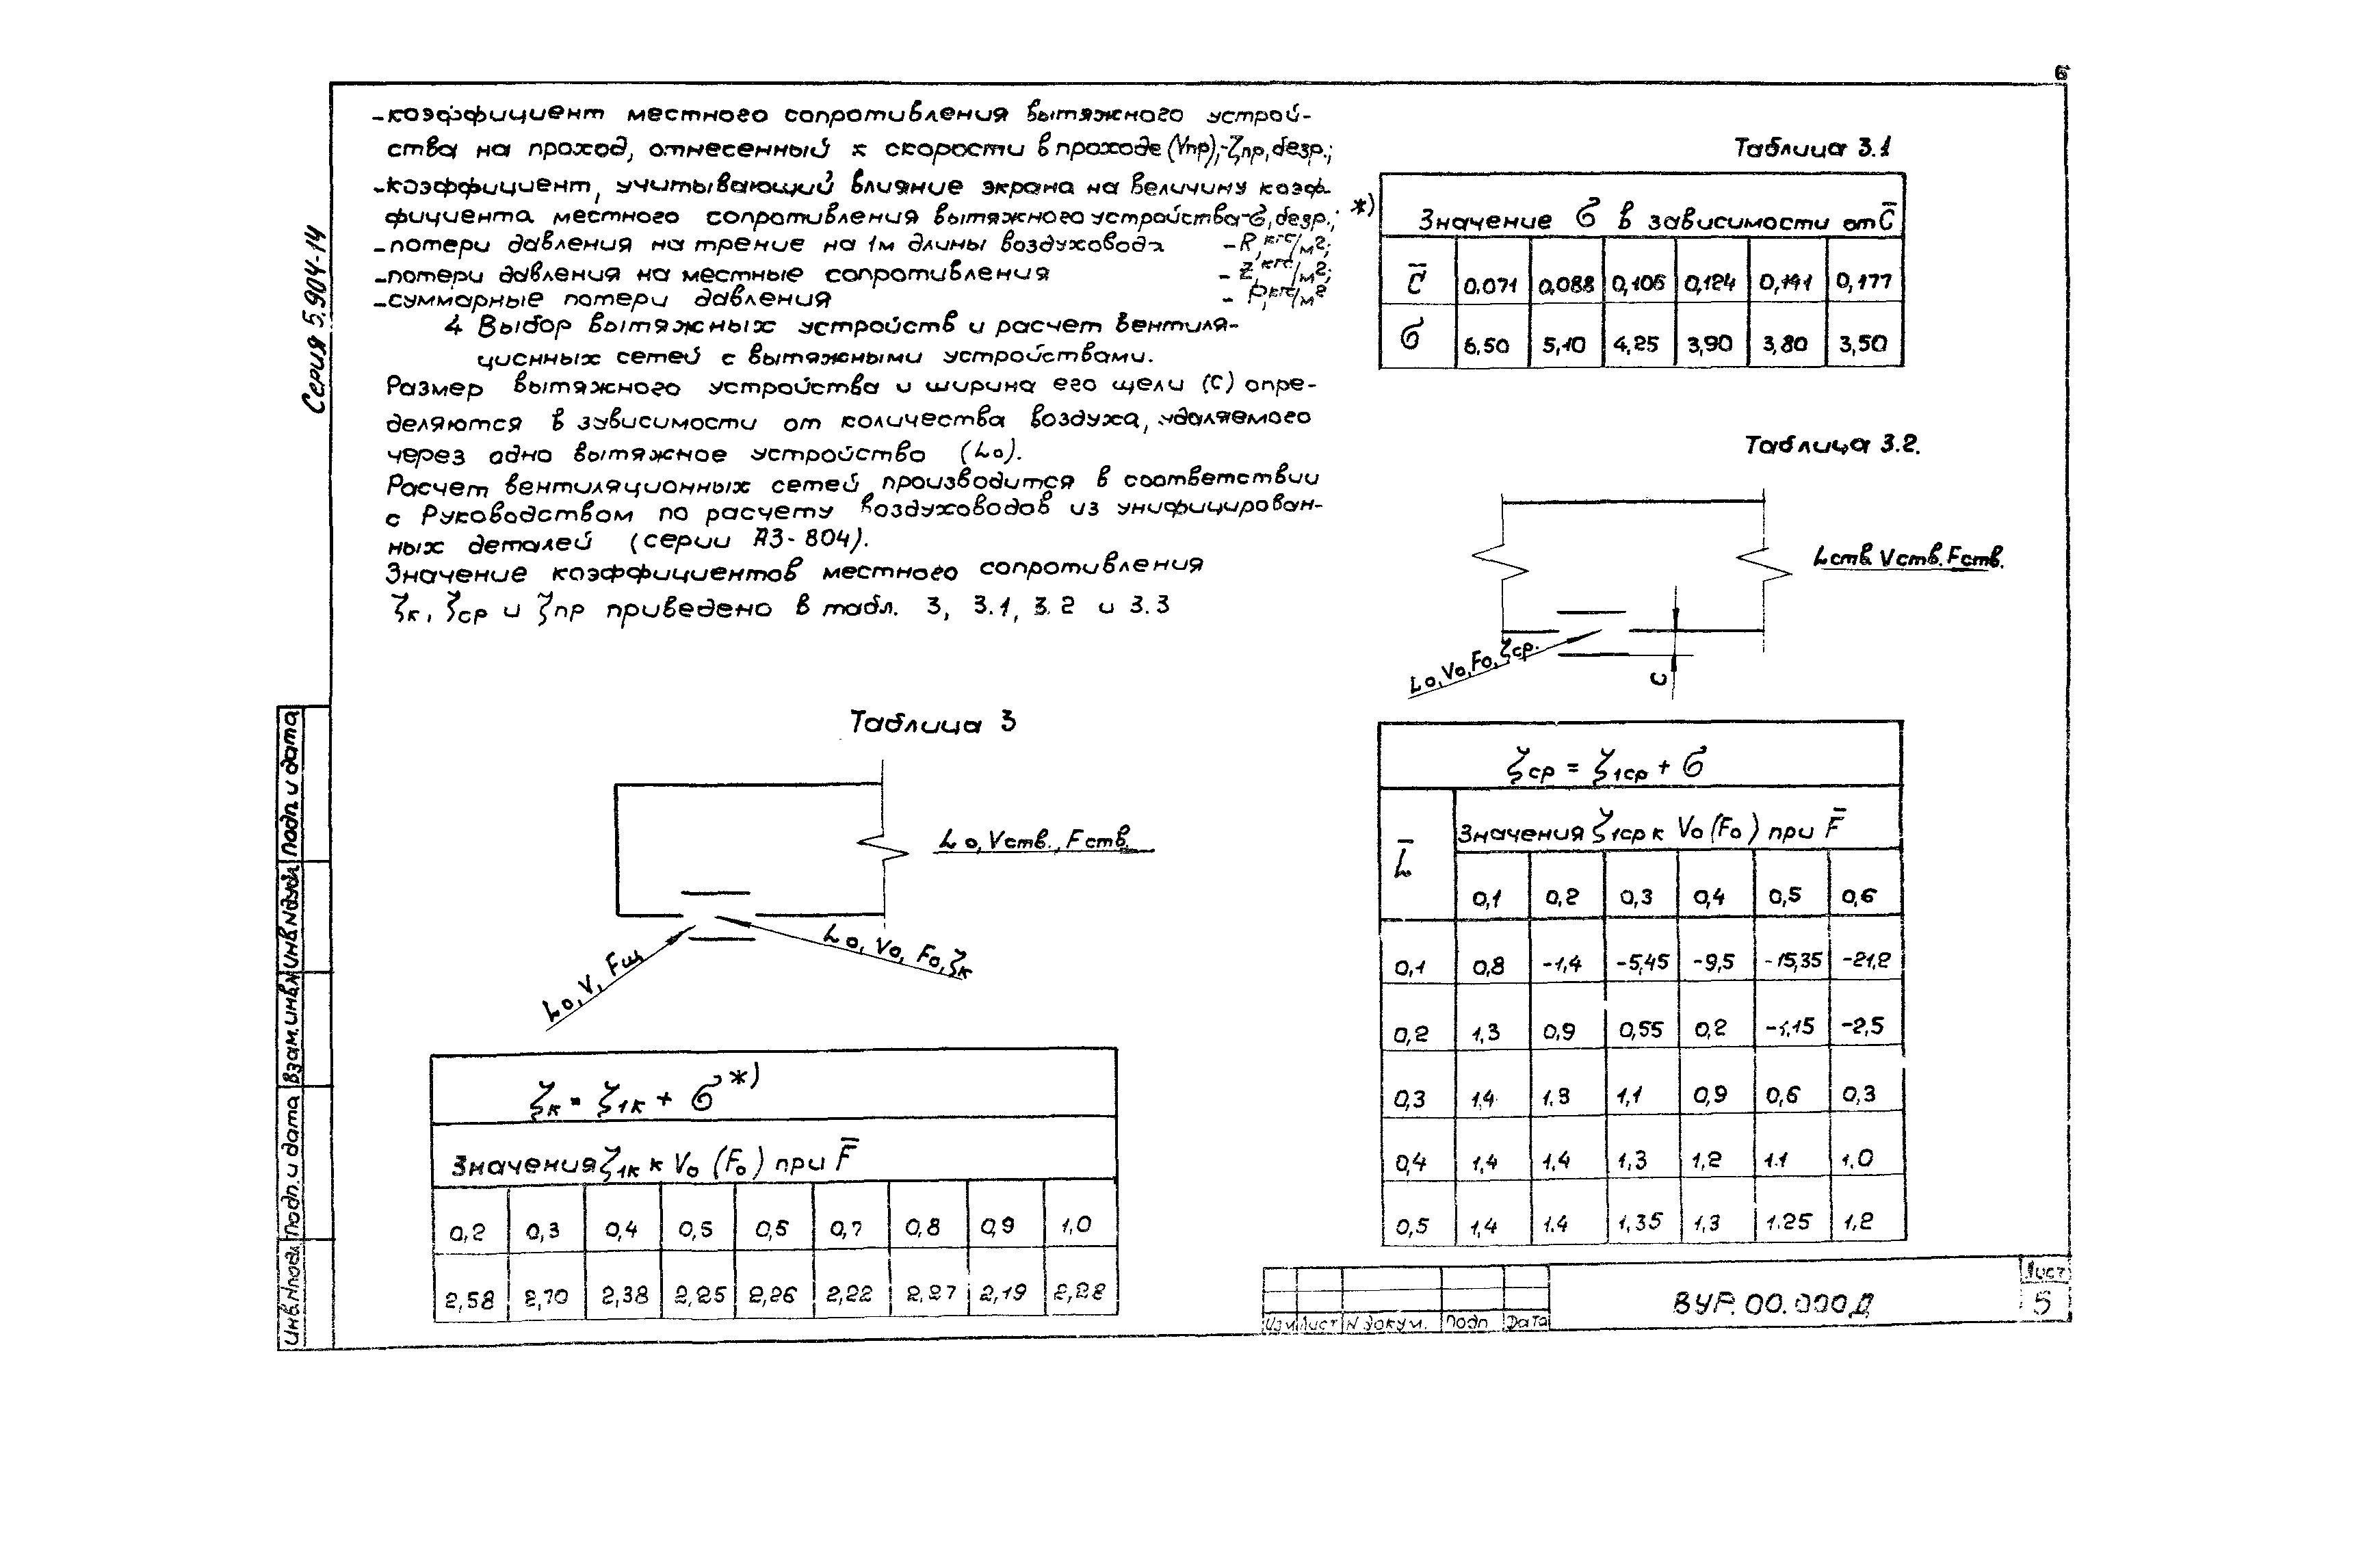 6
Серия 5.904-14
-коэффициент местного сопротивления вытяжного устрой-
ства на проход, отнесенный к скорости в проходе (Vпр),-ζпр, безр.;
-коэффициент, учитывающий влияние экрана на величину коэф-
фициента местного сопротивления вытяжного устройства-б, безр.; *)
-потери давления на трение на 1м длины воздуховода - R, кгс/м²;
-потери давления на местные сопротивления - Z, кгс/м²;
-суммарные потери давления - P, кгс/м²
4 Выбор вытяжных устройств и расчет вентиля-
ционных сетей с вытяжными устройствами.
Размер вытяжного устройства и ширина его щели (С) опре-
деляются в зависимости от количества воздуха, удаляемого
через одно вытяжное устройство (Lo).
Расчет вентиляционных сетей производится в соответствии
с Руководством по расчету воздуховодов из унифицирован-
ных деталей (серии А3-804).
Значение коэффициентов местного сопротивления
ζк, ζср и ζпр приведено в табл. 3, 3.1, 3.2 и 3.3
Таблица 3
Lo, Vств., Fств.
Lo, V, Fщ
Lo, Vo, Fo, ζк
ζк = ζ1к + б*)
Значения ζ1к к Vo (Fo) при F̄
0,2 0,3 0,4 0,5 0,5 0,7 0,8 0,9 1,0
2,58 2,70 2,38 2,25 2,26 2,22 2,27 2,19 2,28
Таблица 3.1
Значение б в зависимости от C̄
C̄ 0.071 0,088 0,106 0,124 0,141 0,177
б 6,50 5,10 4,25 3,90 3,80 3,50
Таблица 3.2.
Lств. Vств. Fств.
Lo, Vo, Fo, ζср.
С
ζср = ζ1ср + б
L̄ Значения ζ1ср к Vo (Fo) при F̄
0,1 0,2 0,3 0,4 0,5 0,6
0,1 0,8 -1,4 -5,45 -9,5 -15,35 -21,2
0,2 1,3 0,9 0,55 0,2 -1,15 -2,5
0,3 1,4 1.3 1,1 0,9 0,6 0,3
0,4 1,4 1,4 1,3 1,2 1.1 1.0
0,5 1,4 1.4 1,35 1,3 1.25 1,2
Инв.N подл. Подп. и дата Взам.инв.N Инв.N дубл. Подп. и дата
Изм Лист N докум. Подп Дата
ВУР.00.000Д
Лист
5